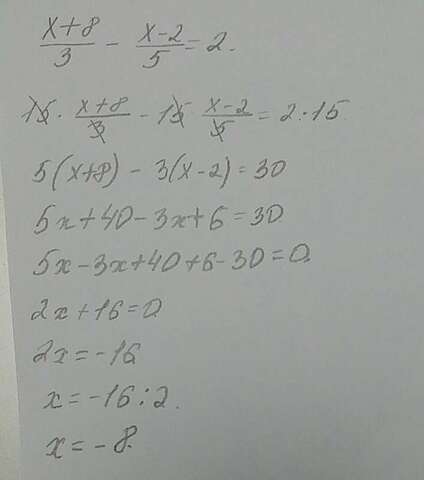 x+8/3 - x-2/5 = 2.
15 · x+8/3 - 15 x-2/5 = 2·15
5(x+8) - 3(x-2) = 30
5x+40-3x+6=30
5x-3x+40+6-30=0.
2x+16=0
2x=-16
x=-16:2.
x=-8.